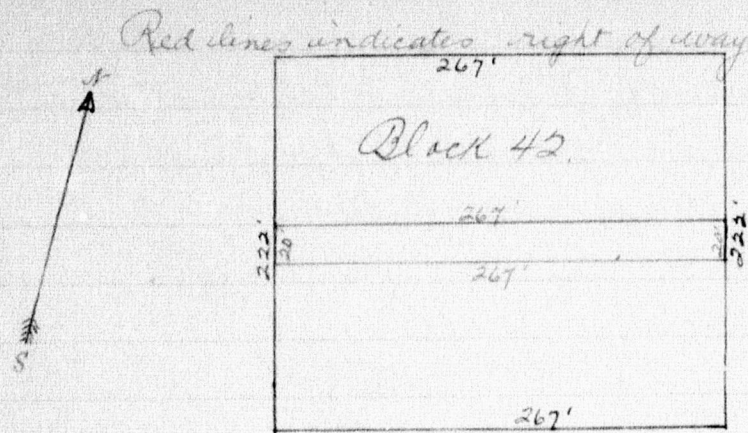 Red lines indicates right of way
267'
N
Block 42.
267'
222'
20'
20'
222'
267'
S
267'